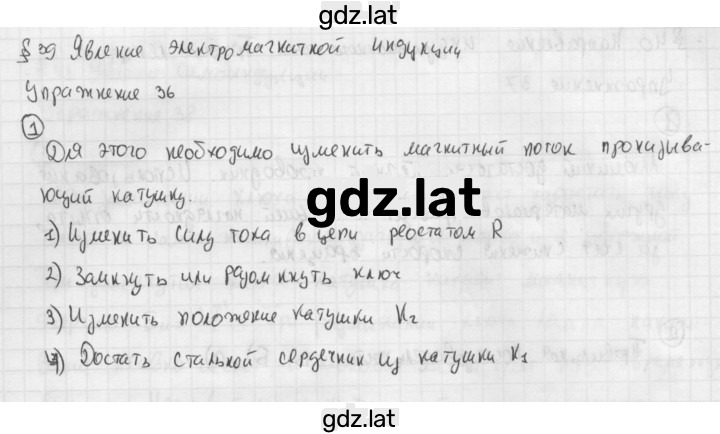 gdz.lat
§ 39 Явление электромагнитной индукции
Упражнение 36
1
Для этого необходимо изменить магнитный поток пронизыва-
ющий катушку.
gdz.lat
1) Изменить силу тока в цепи реостатом R
2) Замкнуть или разомкнуть ключ
3) Изменить положение катушки K2
4) Достать стальной сердечник из катушки K1
gdz.lat